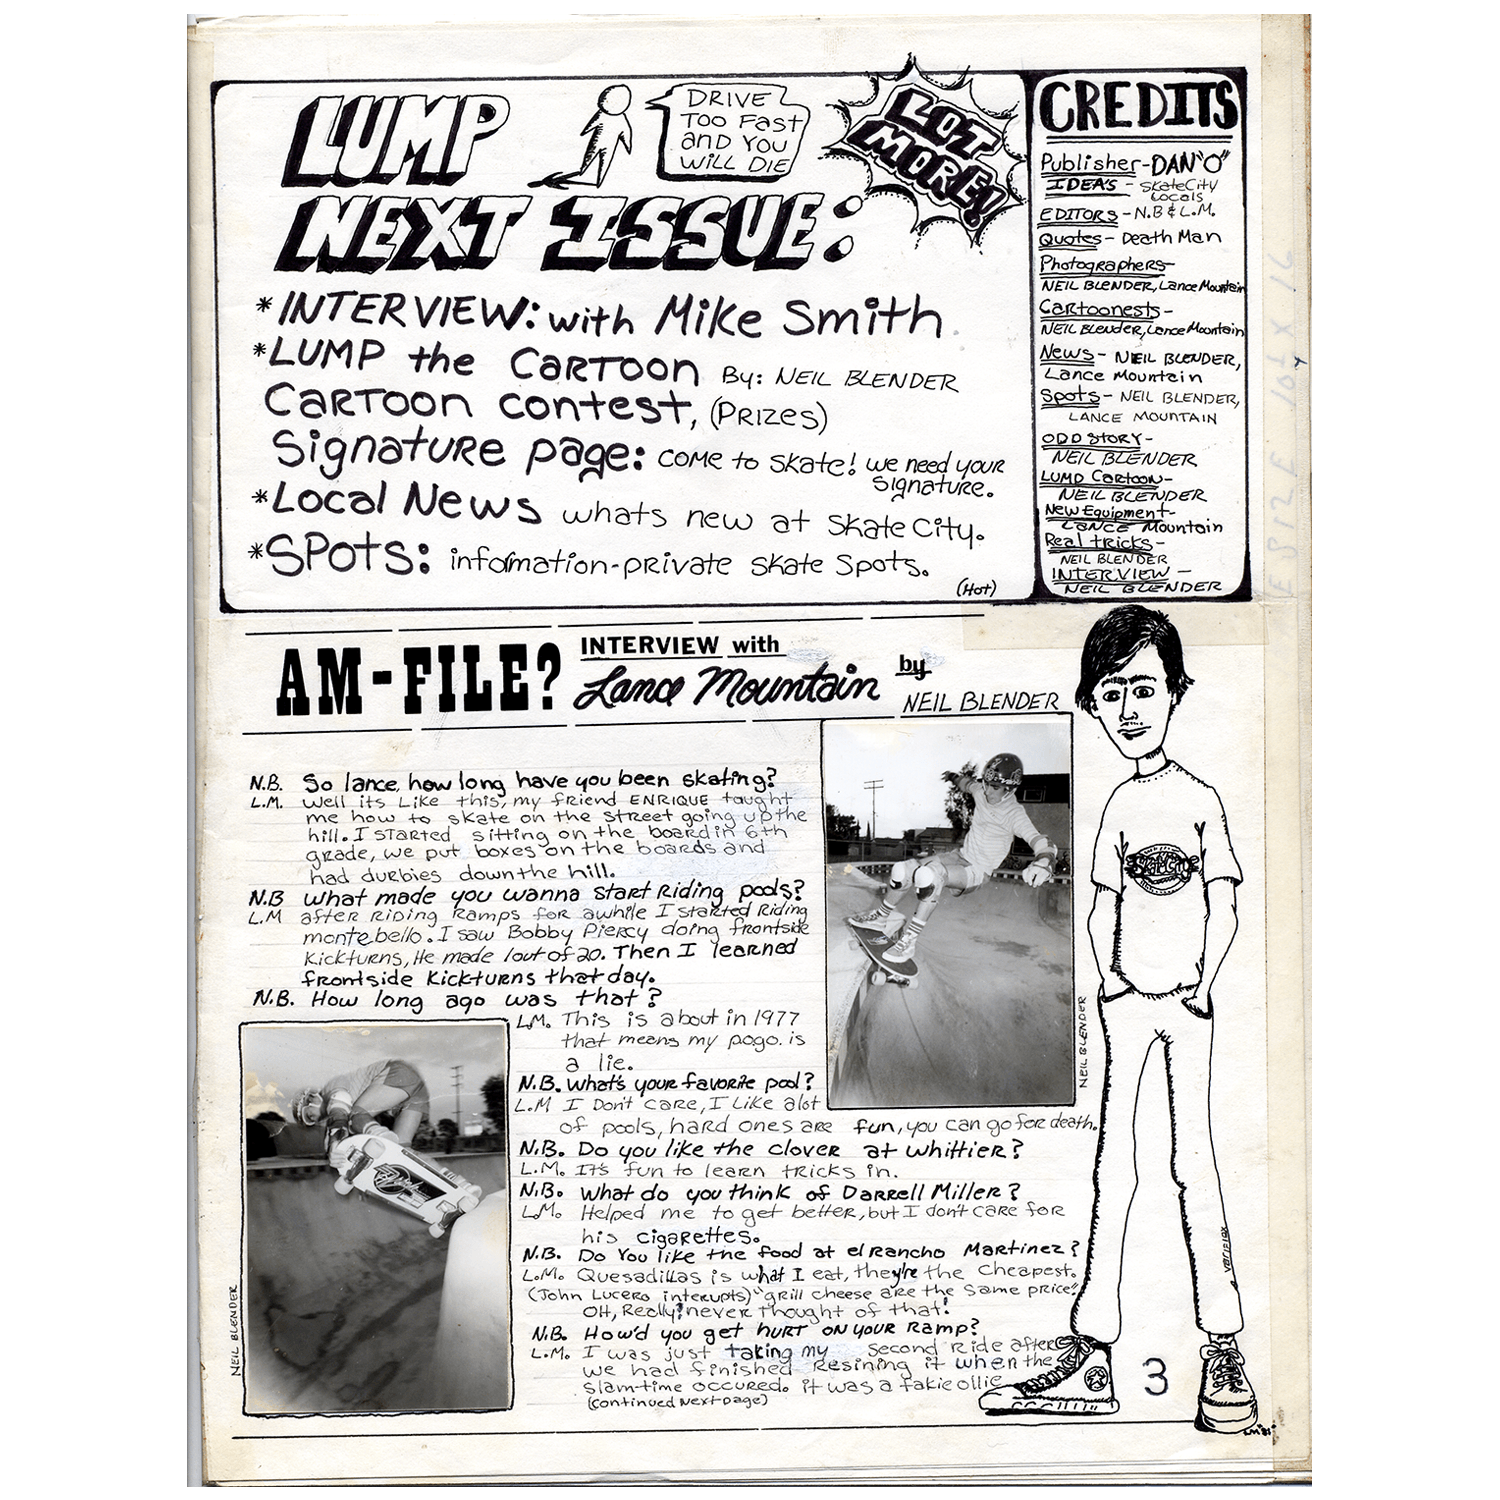 LUMP
NEXT ISSUE:
DRIVE
TOO FAST
AND YOU
WILL DIE
LOT
MORE!
*INTERVIEW: with Mike Smith
*LUMP the CARTOON By: NEIL BLENDER
CARTOON contest, (PRIZES)
Signature page: COME to skate! we need your
signature.
*Local News whats new at Skate City.
*SPOTS: information-private skate spots.
(Hot)
CREDITS
Publisher-DAN "O"
IDEA'S - SkateCity
Locals
EDITORS - N.B & L.M.
Quotes - Death Man
Photographers-
NEIL BLENDER, Lance Mountain
Cartoonests-
NEIL Blender, Lance Mountain
News - NEIL BLENDER,
Lance Mountain
Spots - NEIL BLENDER,
LANCE MOUNTAIN
ODD STORY-
NEIL BLENDER
LUMP Cartoon-
NEIL BLENDER
New Equipment-
LANCE Mountain
Real tricks-
NEIL BLENDER
INTERVIEW -
NEIL BLENDER
AM-FILE? INTERVIEW with
Lance Mountain by
NEIL BLENDER
N.B. So lance, how long have you been skating?
L.M. Well its Like this, my friend ENRIQUE taught
me how to skate on the street going up the
hill. I started sitting on the board in 6th
grade, we put boxes on the boards and
had durbies down the hill.
N.B What made you wanna start Riding pools?
L.M after Riding Ramps for awhile I started Riding
montebello. I saw Bobby Piercy doing frontside
kickturns, He made 1 out of 20. Then I learned
frontside kickturns that day.
N.B. How long ago was that?
L.M. This is about in 1977
that means my pogo is
a lie.
N.B. What's your favorite pool?
L.M I Don't care, I Like alot
of pools, hard ones are fun, you can go for death.
N.B. Do you like the clover at whittier?
L.M. It's fun to learn tricks in.
N.B. What do you think of Darrell Miller?
L.M. Helped me to get better, but I don't care for
his cigarettes.
N.B. Do You like the food at el Rancho Martinez?
L.M. Quesadillas is what I eat, they're the cheapest.
(John Lucero interupts) "grill cheese are the same price."
OH, Really? never thought of that!
N.B. How'd you get hurt on your Ramp?
L.M. I was just taking my second ride after
we had finished Resining it when the
slam-time occured. it was a fakie ollie
(continued Next page)
NEIL BLENDER
NEIL BLENDER
SkateCity
Variflex
3
LM '81